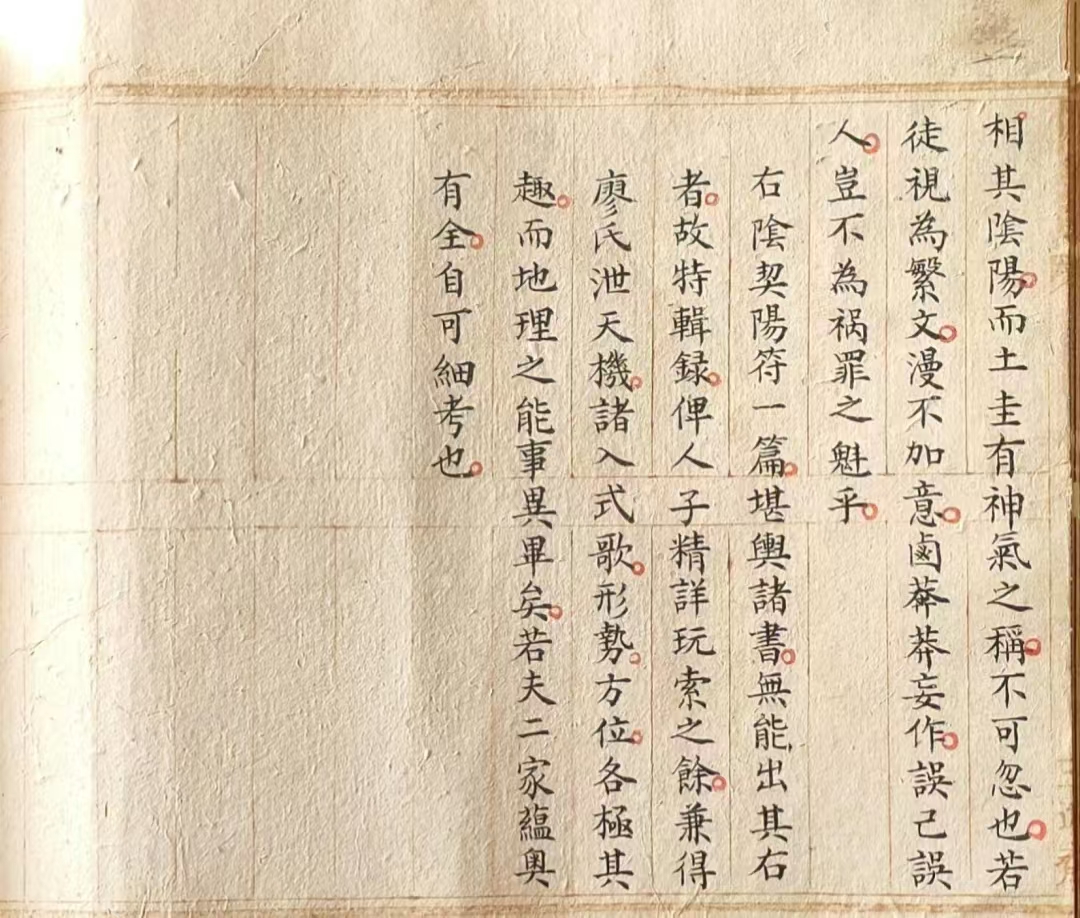 相其陰陽而土圭有神氣之稱不可忽也若
徒視為繁文漫不加意鹵莽莽妄作誤己誤
人豈不為祸罪之魁乎
右陰契陽符一篇堪輿諸書無能出其右
者故特輯録俾人子精詳玩索之餘兼得
廖氏泄天機諸入式歌形勢方位各極其
趣而地理之能事異畢矣若夫二家蘊奥
有全自可細考也